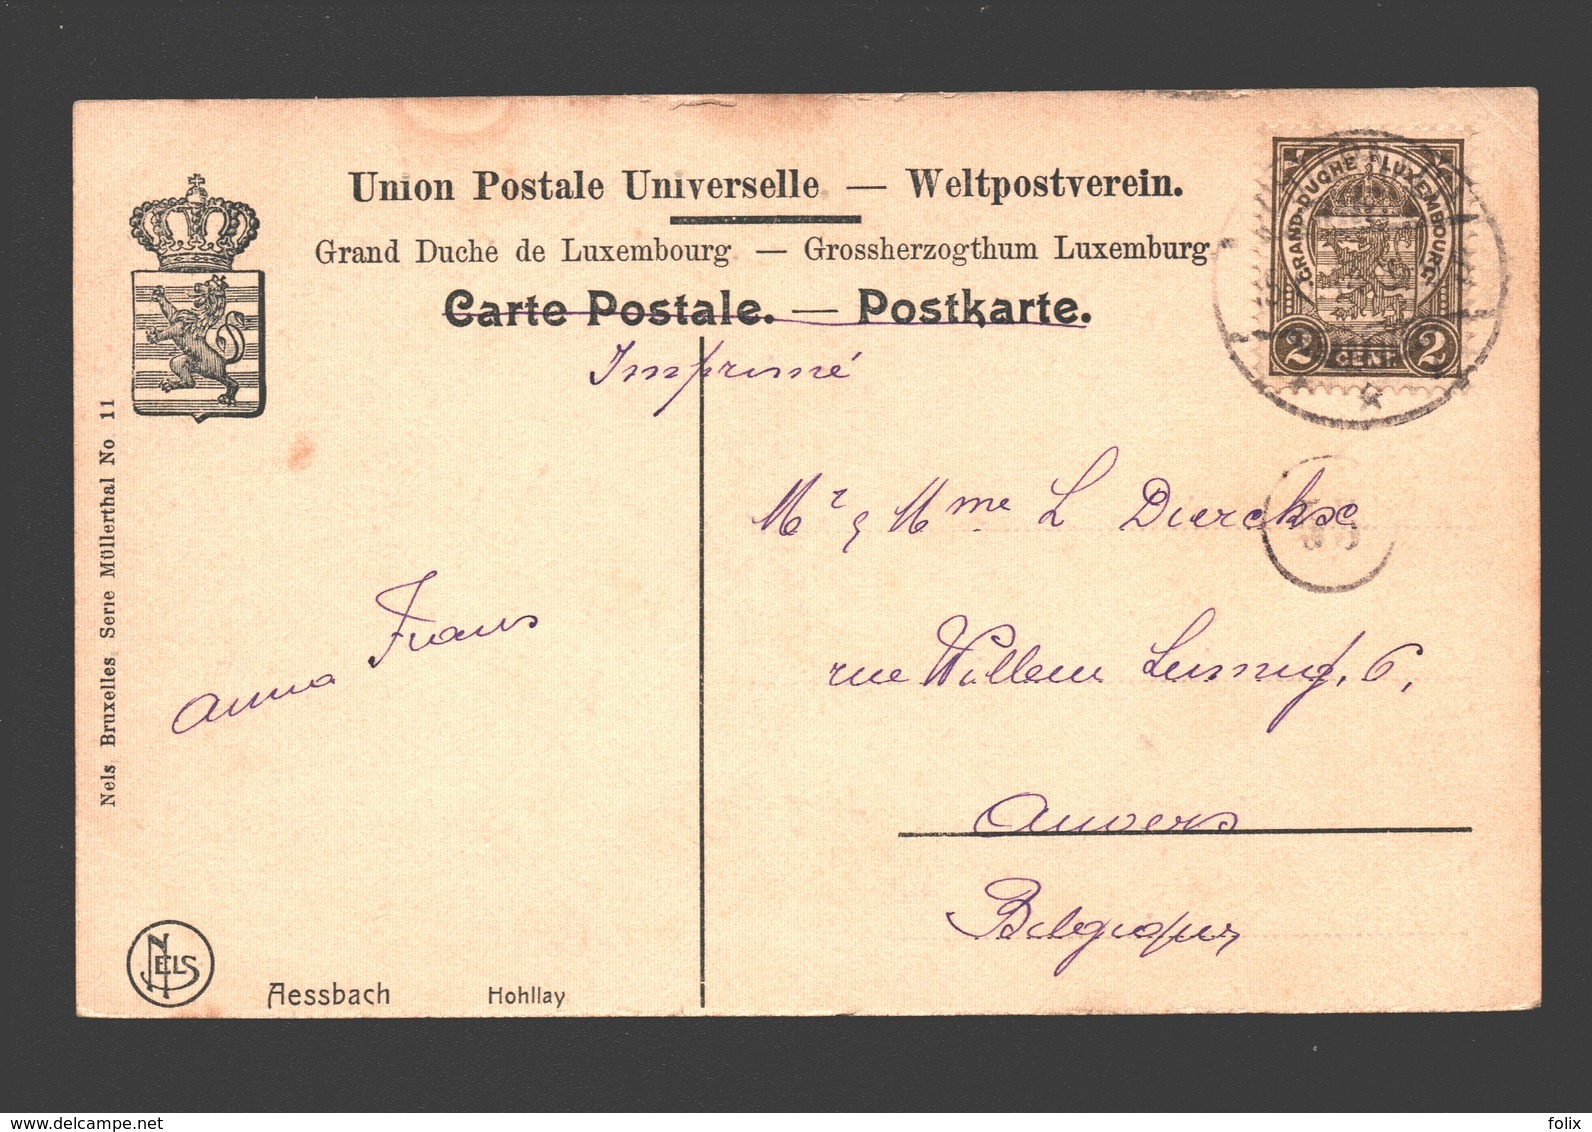 Union Postale Universelle — Weltpostverein.
Grand Duche de Luxembourg — Grossherzogthum Luxemburg
Carte Postale. — Postkarte.
Imprimé
GRAND-DUCHE LUXEMBOURG
2 CENT. 2
Mr & Mme L Dierckse
rue Willem 6,
Anvers
Belgique
Anna Frans
Nels, Bruxelles Serie Müllerthal No 11
NELS
Aessbach Hohllay
www.delcampe.net
folix